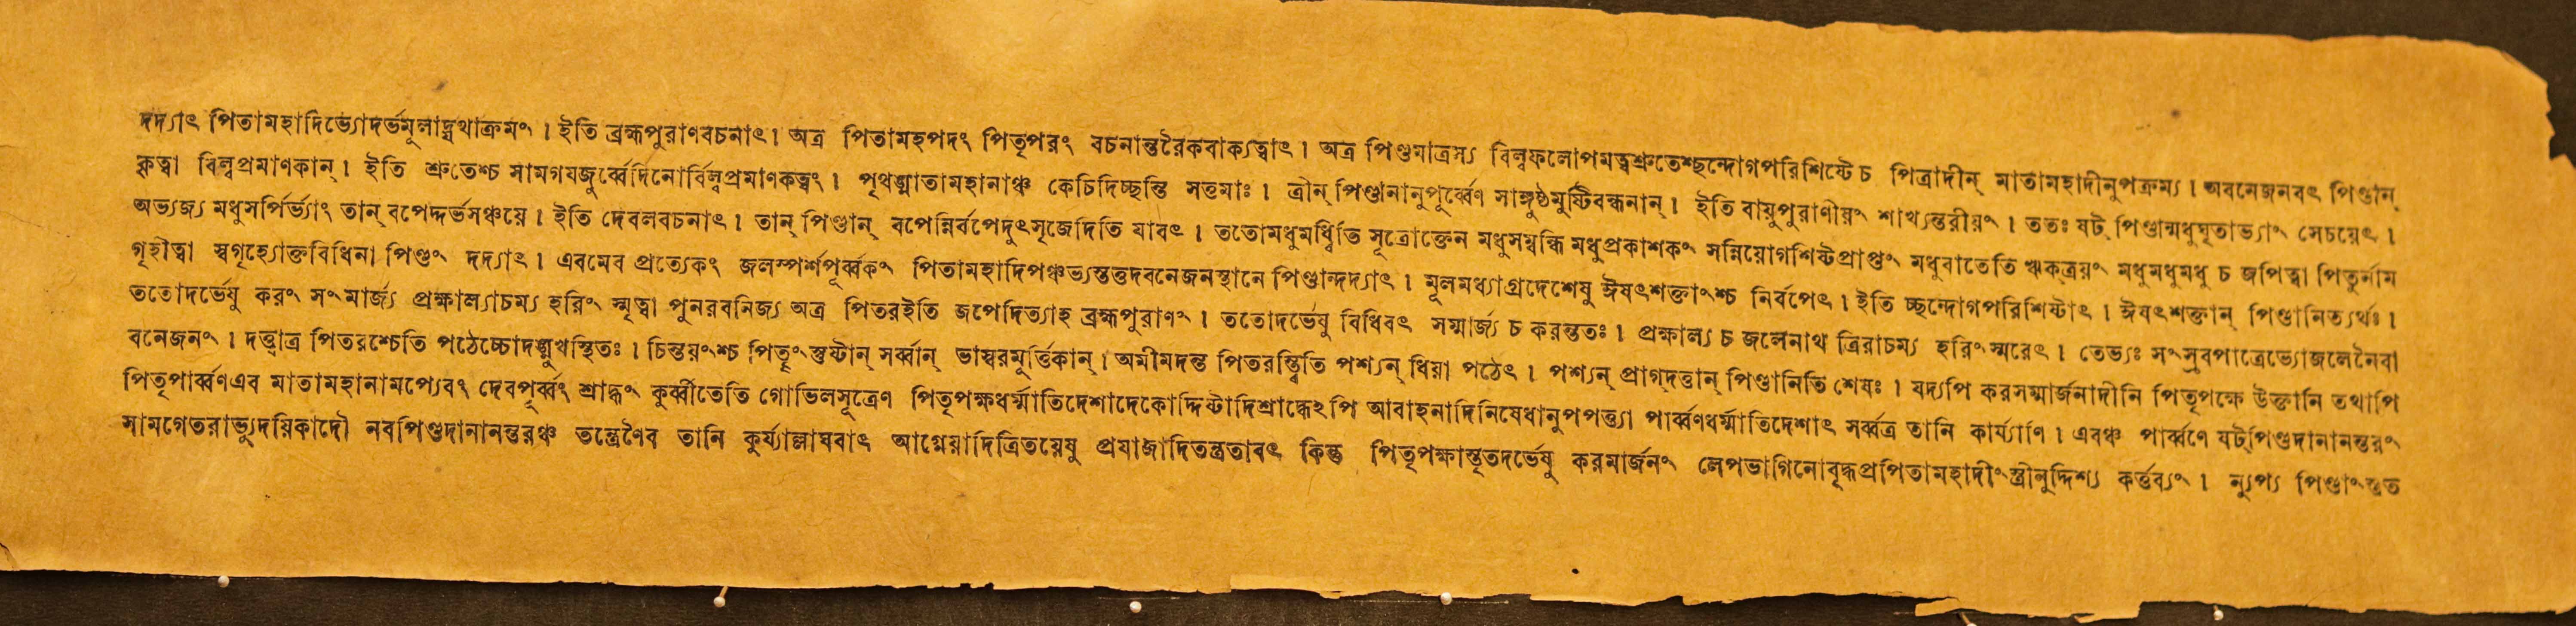 দদ্যাৎ পিতামহাদিভ্যোদর্ভমূলাদ্যথাক্রমং । ইতি ব্রহ্মপুরাণবচনাৎ। অত্র পিতামহপদং পিতৃপরং বচনান্তরৈকবাক্যত্বাৎ । অত্র পিণ্ডমাত্রস্য বিল্বফলোপমত্বশ্রুতেশ্ছন্দোগপরিশিষ্টে চ পিত্রাদীন্ মাতামহাদীনুপক্রম্য । অবনেজনবৎ পিণ্ডান্
কৃত্বা বিল্বপ্রমাণকান্ । ইতি শ্রুতেশ্চ সামগযজুর্ব্বেদিনোর্বিল্বপ্রমাণকত্বং । পৃথঙ্মাতামহানাঞ্চ কেচিদিচ্ছন্তি সত্তমাঃ । ত্রীন্ পিণ্ডানানুপূর্ব্বেণ সাঙ্গুষ্ঠমুষ্টিবন্ধনান্ । ইতি বায়ুপুরাণীয়ং শাখ্যন্তরীয়ং । ততঃ ষট্ পিণ্ডান্মধুঘৃতাভ্যাং সেচয়েৎ ।
অভ্যজ্য মধুসর্পির্ভ্যাং তান্ বপেদ্দর্ভসঞ্চয়ে । ইতি দেবলবচনাৎ । তান্ পিণ্ডান্ বপেন্নির্বপেদুৎসৃজেদিতি যাবৎ । ততোমধুমধ্বিতি সূত্রোক্তেন মধুসম্বন্ধি মধুপ্রকাশকং সন্নিয়োগশিষ্টপ্রাপ্তং মধুবাতেতি ঋক্‌ত্রয়ং মধুমধুমধু চ জপিত্বা পিতুর্নাম
গৃহীত্বা স্বগৃহ্যোক্তবিধিনা পিণ্ডং দদ্যাৎ । এবমেব প্রত্যেকং জলস্পর্শপূর্ব্বকং পিতামহাদিপঞ্চভ্যস্তত্তদবনেজনস্থানে পিণ্ডান্দদ্যাৎ । মূলমধ্যাগ্রদেশেষু ঈষৎশক্তাংশ্চ নির্বপেৎ । ইতি চ্ছন্দোগপরিশিষ্টাৎ । ঈষৎশক্তান্ পিণ্ডানিত্যর্থঃ ।
ততোদর্ভেষু করং সংমার্জ্য প্রক্ষাল্যাচম্য হরিং স্মৃত্বা পুনরবনিজ্য অত্র পিতরইতি জপেদিত্যাহ ব্রহ্মপুরাণং । ততোদর্ভেষু বিধিবৎ সম্মার্জ্য চ করন্ততঃ । প্রক্ষাল্য চ জলেনাথ ত্রিরাচম্য হরিং স্মরেৎ । তেভ্যঃ সংস্রবপাত্রেভ্যোজলেনৈবা
বনেজনং । দত্ত্বাত্র পিতরশ্চেতি পঠেচ্চোদঙ্মুখস্থিতঃ । চিন্তয়ংশ্চ পিতৄংস্তুষ্টান্ সর্ব্বান্ ভাস্বরমূর্ত্তিকান্ । অমীমদন্ত পিতরস্ত্বিতি পশ্যন্ ধিয়া পঠেৎ । পশ্যন্ প্রাগ্‌দত্তান্ পিণ্ডানিতি শেষঃ । যদ্যপি করসম্মার্জনাদীনি পিতৃপক্ষে উক্তানি তথাপি
পিতৃপার্ব্বণএব মাতামহানামপ্যেবং দেবপূর্ব্বং শ্রাদ্ধং কুর্ব্বীতেতি গোভিলসূত্রেণ পিতৃপক্ষধর্ম্মাতিদেশাদেকোদ্দিষ্টাদিশ্রাদ্ধেঽপি আবাহনাদিনিষেধানুপপত্ত্যা পার্ব্বণধর্ম্মাতিদেশাৎ সর্ব্বত্র তানি কার্য্যাণি । এবঞ্চ পার্ব্বণে ষট্‌পিণ্ডদানানন্তরং
সামগেতরাভ্যুদয়িকাদৌ নবপিণ্ডদানানন্তরঞ্চ তন্ত্রেণৈব তানি কুর্য্যাল্লাঘবাৎ আগ্নেয়াদিত্রিতয়েষু প্রযাজাদিতন্ত্রতাবৎ কিন্তু পিতৃপক্ষাস্তৃতদর্ভেষু করমার্জনং লেপভাগিনোবৃদ্ধপ্রপিতামহাদীংস্ত্রীনুদ্দিশ্য কর্ত্তব্যং । ন্যুপ্য পিণ্ডাংস্তত